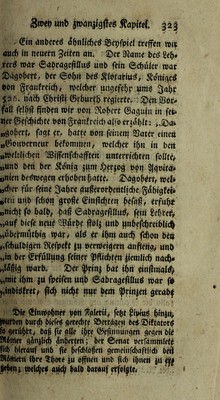 Zwey und zwanzigstes Kapitel. 323
Ein anderes ähnliches Beyspiel treffen wir
auch in neuern Zeiten an. Der Name des Leh-
rers war Sadragesillus und sein Schüler war
Dagobert, der Sohn des Klotarius, Königes
von Frankreich, welcher ungefehr ums Jahr
nach Christi Geburth regierte. Den Vor-
fall selbst finden wir von Robert Gaguin in sei-
ner Geschichte von Frankreich also erzählt: „Da-
„gobert, sagt er, hatte von seinem Vater einen
„Gouverneur bekommen, welcher ihn in den
„welschen Wissenschafften unterrichten sollte,
„und den der König zum Herzog von Aquita-
„nien deswegen erhoben hatte. Dagobert, wel-
„cher für seine Jahre außerordentliche Fähigkei-
„ten und schon große Einsichten besaß, erfuhr
„nicht so bald, daß Sadragesillus, sein Lehrer,
„auf diese neue Würde stolz und unbeschreiblich
„übermüthig war, als er ihm auch schon den
„schuldigen Respekt zu verweigern anfieng, und
„in der Erfüllung seiner Pflichten ziemlich nach-
„läßig ward. Der Prinz bat ihn einstmals,
„mit ihm zu speisen und Sadragesillus war so
„indiskret, sich nicht nur dem Prinzen gerade
Die Einwohner von Falerii, setzt Livius hinzu,
wurden durch dieses gerechte Betragen des Diktators
so gerührt, daß sie alle ihre Gesinnungen gegen die
Römer gänzlich änderten; der Senat versammlete
sich hierauf und sie beschloßen gemeinschaftlich den
Römern ihre Thore zu öffnen und sich ihnen zu
geben; welches auch bald darauf erfolgte.